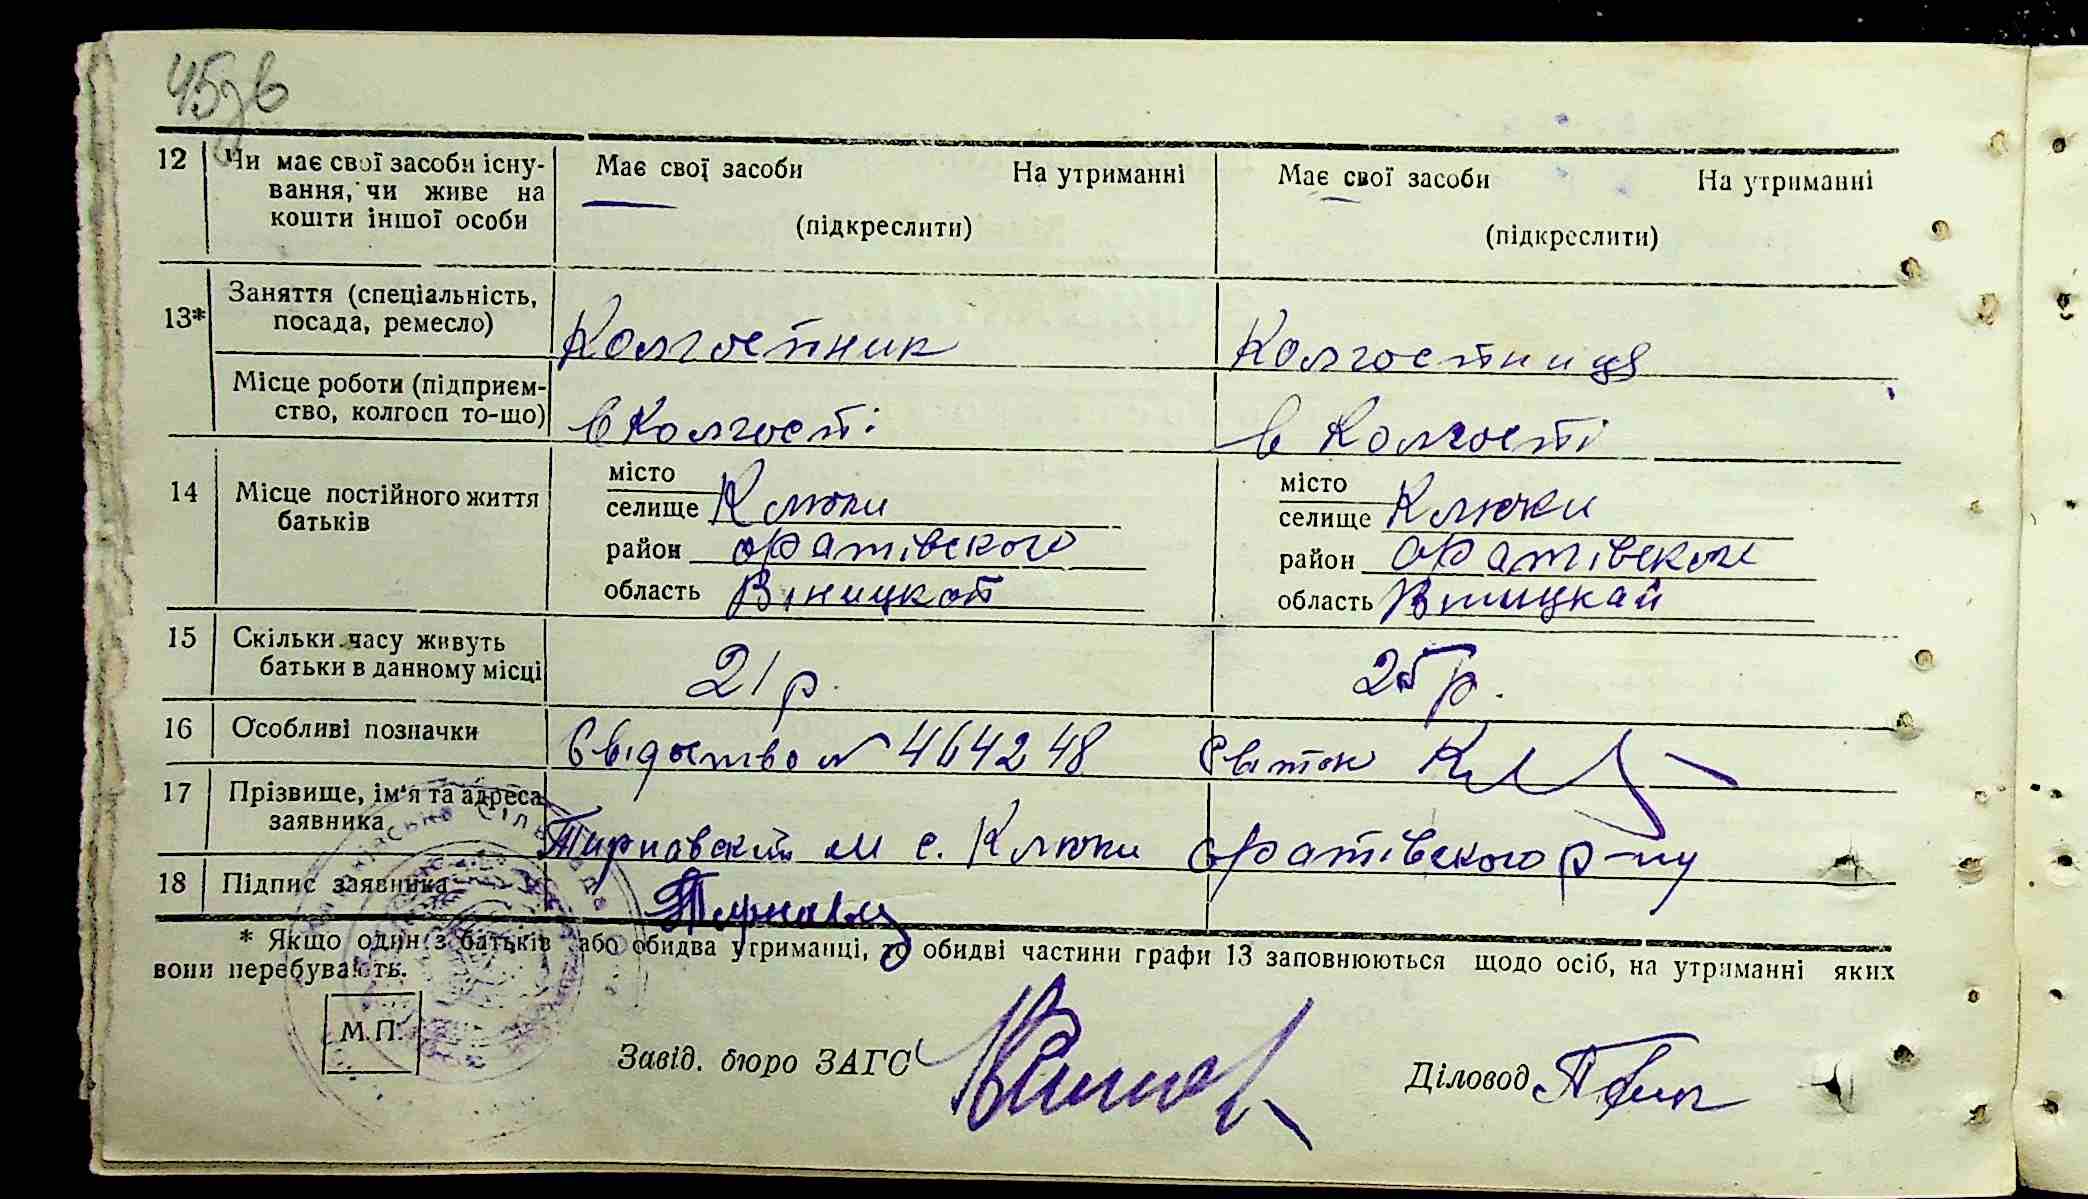 45зв
12 Чи має свої засоби існу- Має свої засоби На утриманні Має свої засоби На утриманні
вання, чи живе на
кошти іншої особи (підкреслити) (підкреслити)
13* Заняття (спеціальність,
посада, ремесло) Колгоспник Колгоспниця
Місце роботи (підприєм-
ство, колгосп то-що) в Колгоспі в Колгоспі
14 Місце постійного життя місто місто
батьків селище Клюки селище Клюки
район оратівского район оратівского
область Вініцкой область Вініцкай
15 Скільки часу живуть
батьки в данному місці 21 р. 25 р.
16 Особливі позначки Свідоство № 464248
17 Прізвище, ім'я та адреса
заявника Тирновский м с. Клюки оратівского р-ну
18 Підпис заявника
* Якщо один з батьків або обидва утриманці, то обидві частини графи 13 заповнюються щодо осіб, на утриманні яких
вони перебувають.
М.П.
Завід. бюро ЗАГС Діловод